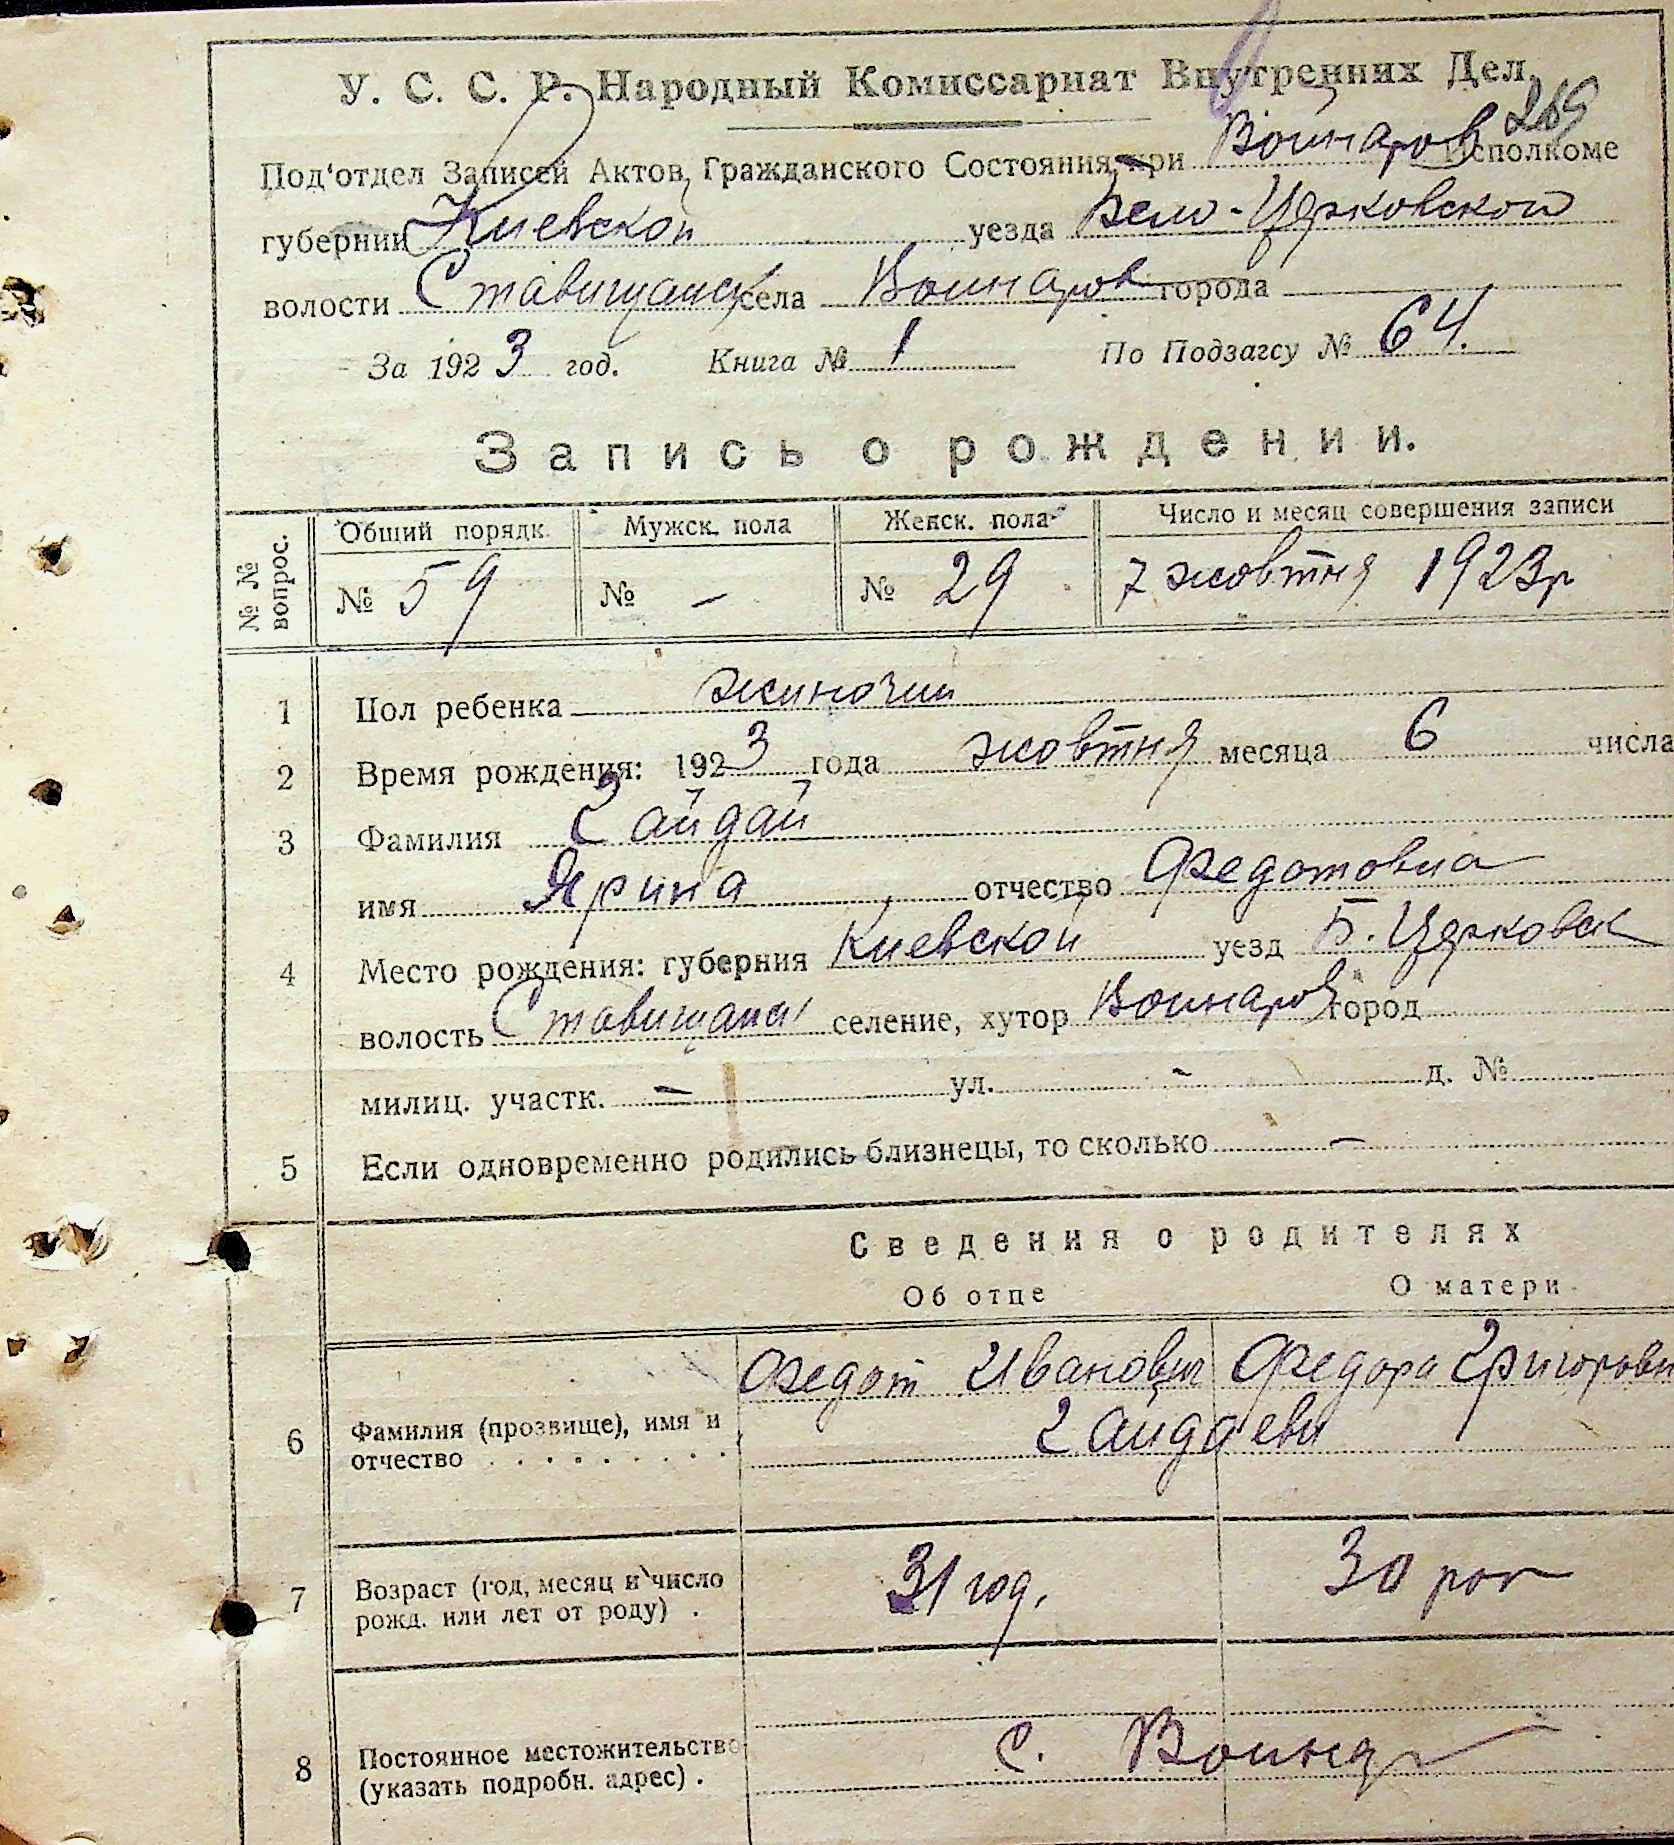 У. С. С. Р. Народный Комиссариат Внутренних Дел.
269
Под'отдел Записей Актов Гражданского Состояния при Войнаров Исполкоме
губернии Киевской уезда Бело-Церковской
волости Ставищанск села Воинаров города
За 1923 год. Книга № 1 По Подзагсу № 64.
Запись о рождении.
№ № вопрос. Общий порядк. Мужск. пола Женск. пола Число и месяц совершения записи
№ 59 № — № 29 7 жовтня 1923р
1 Пол ребенка жиночии
2 Время рождения: 1923 года жовтня месяца 6 числа
3 Фамилия Гайдай
имя Ярина отчество Федотовна
4 Место рождения: губерния Киевской уезд Б. Церковск
волость Ставищанс селение, хутор Воинаров город
милиц. участк. — ул. - д. №
5 Если одновременно родились близнецы, то сколько —
Сведения о родителях
Об отце О матери
6 Фамилия (прозвище), имя и отчество Федот Иванович Федора Григоровн
Гайдаеви
7 Возраст (год, месяц и число рожд. или лет от роду) . 31 год. 30 рок
8 Постоянное местожительство (указать подробн. адрес) . с. Воинар